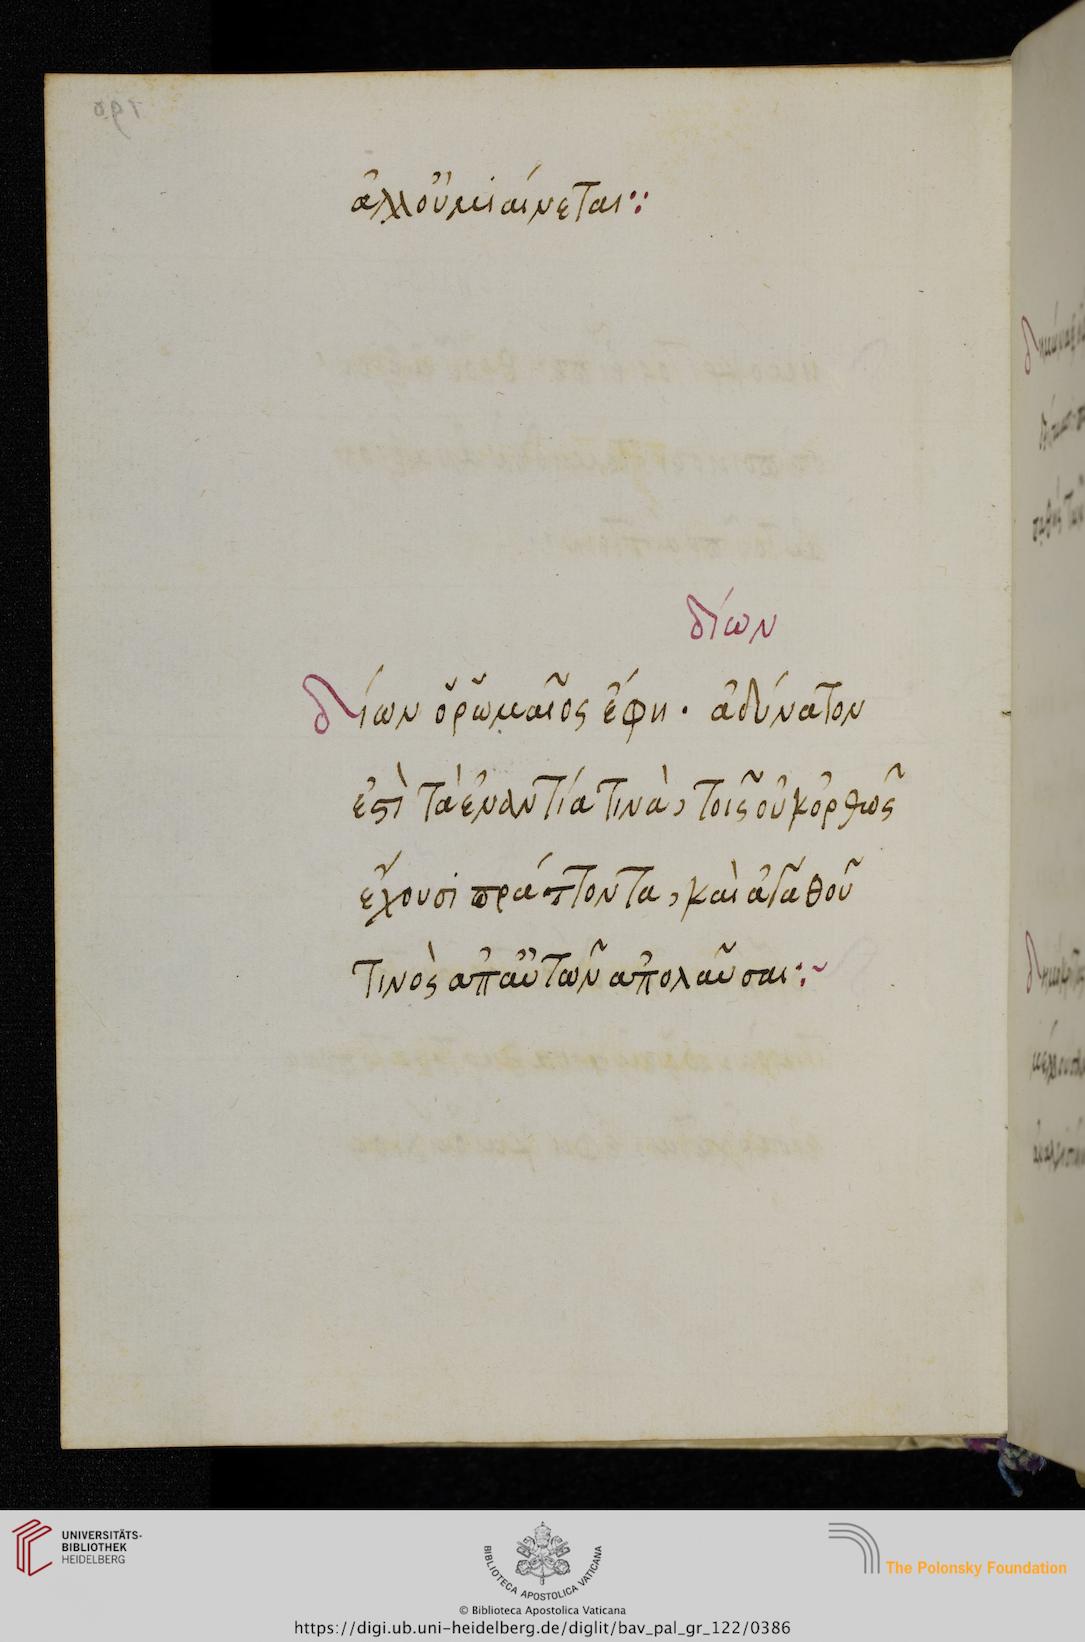 ἀλλ οὐ μιαίνεται:
δίων
δίων ὁ ῥωμαῖος ἔφη· ἀδύνατον
ἐστὶ τὰ ἐναντία τινὰ, τοῖς οὐκ ὀρθῶς
ἔχουσι πράττοντα, καὶ ἀγαθοῦ
τινὸς ἀπ αὐτῶν ἀπολαῦσαι:~
UNIVERSITÄTS-
BIBLIOTHEK
HEIDELBERG
BIBLIOTECA APOSTOLICA VATICANA
The Polonsky Foundation
© Biblioteca Apostolica Vaticana
https://digi.ub.uni-heidelberg.de/diglit/bav_pal_gr_122/0386